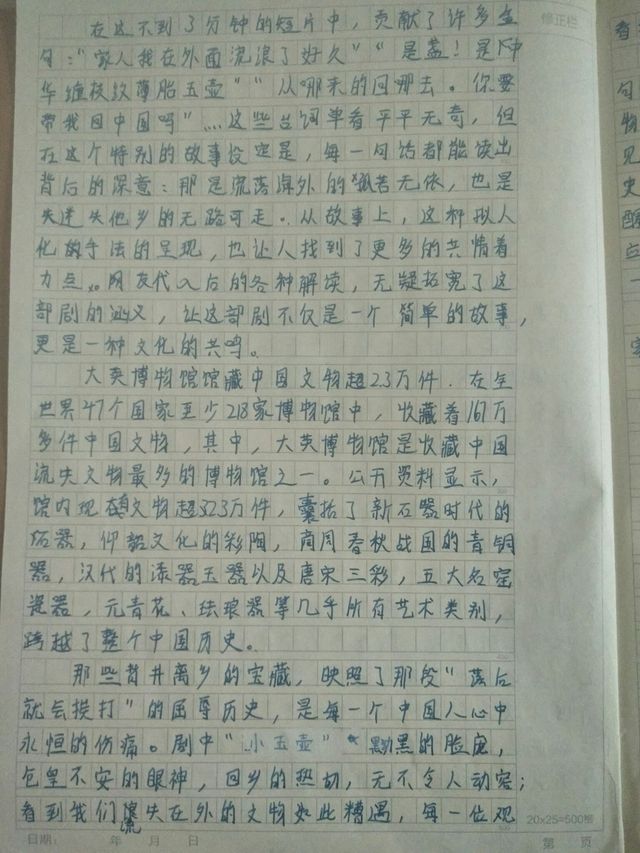 在这不到3分钟的短片中，贡献了许多金
句："家人我在外面流浪了好久""是盏！是中
华缠枝纹薄胎玉壶""从哪来的回哪去。你要
带我回中国吗"....这些台词单看平平无奇，但
在这个特别的故事设定是，每一句话都能读出
背后的深意：那是流落海外的孤苦无依，也是
失迷失他乡的无路可走。从故事上，这种拟人
化的手法的呈现，也让人找到了更多的共情着
力点。网友代入后的各种解读，无疑拓宽了这
部剧的涵义，让这部剧不仅是一个简单的故事，
更是一种文化的共鸣。
大英博物馆馆藏中国文物超2.3万件．在全
世界47个国家至少218家博物馆中，收藏着167万
多件中国文物，其中，大英博物馆是收藏中国
流失文物最多的博物馆之一。公开资料显示，
馆内现存文物超32.3万件，囊括了新石器时代的
石器，仰韶文化的彩陶，商周春秋战国的青铜
器，汉代的漆器玉器以及唐宋三彩，五大名窑
瓷器，元青花、珐琅器等几乎所有艺术类别，
跨越了整个中国历史。
那些背井离乡的宝藏，映照了那段"落后
就会挨打"的屈辱历史，是每一个中国人心中
永恒的伤痛。剧中"小玉壶"黝黑的脸庞，
包里不安的眼神，回乡的热切，无不令人动容；
看到我们流失在外的文物如此糟遇，每一位观
修正栏
20×25=500格
日期： 年 月 日
第 页
句
物
见
史